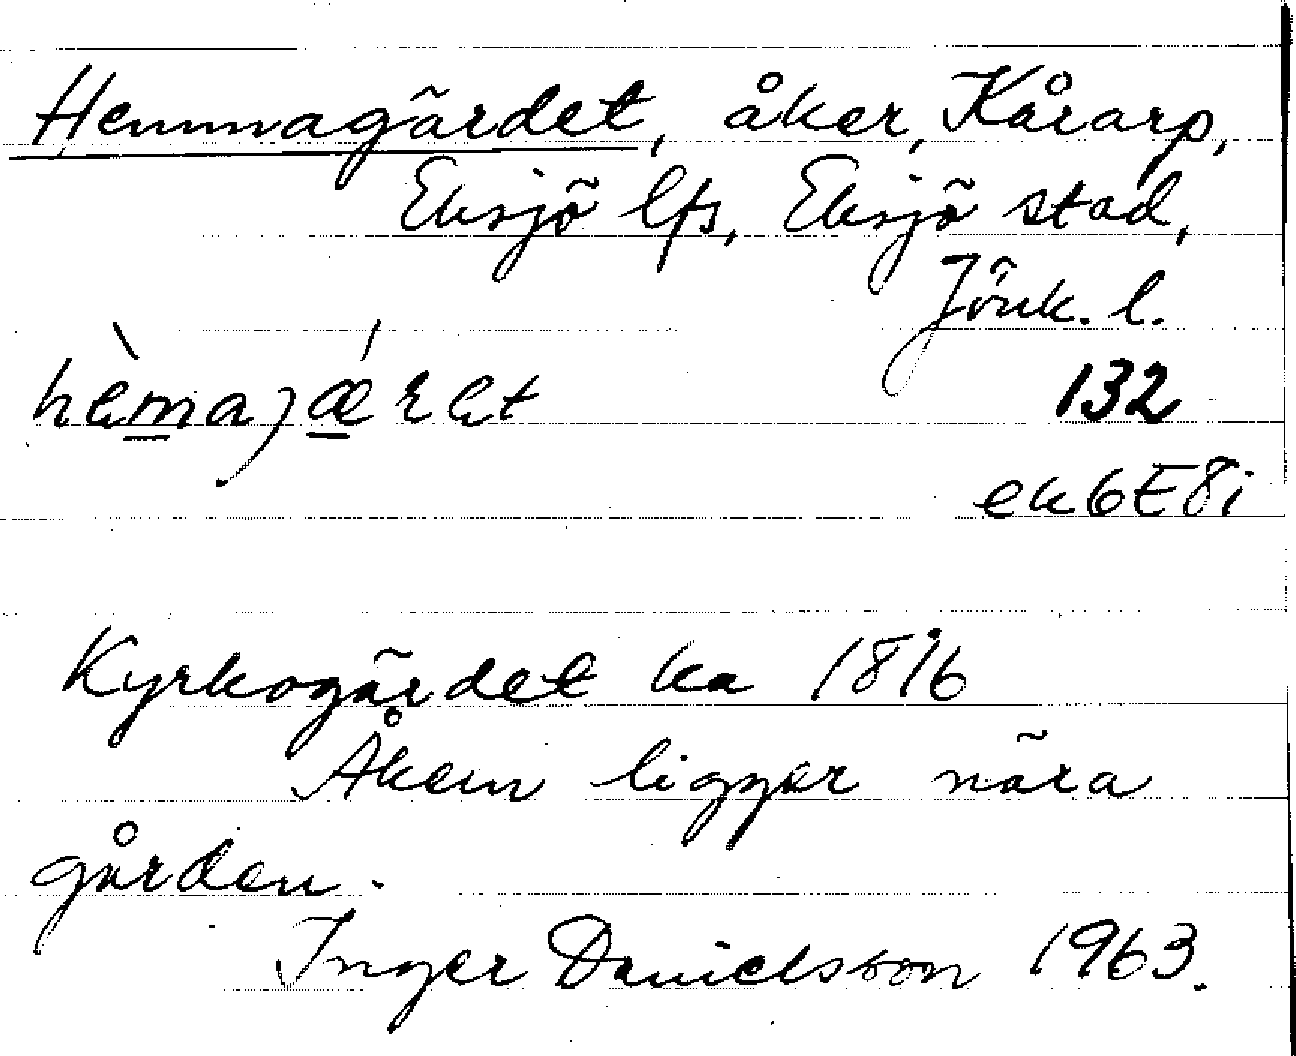 Hemmagärdet, åker, Kårarp,
Eksjö lfs, Eksjö stad,
Jönk. l.
hèmajǽret
132
ek 6E8i
Kyrkogärdet ka 1816
Åkern ligger nära
gården.
Inger Danielsson 1963.